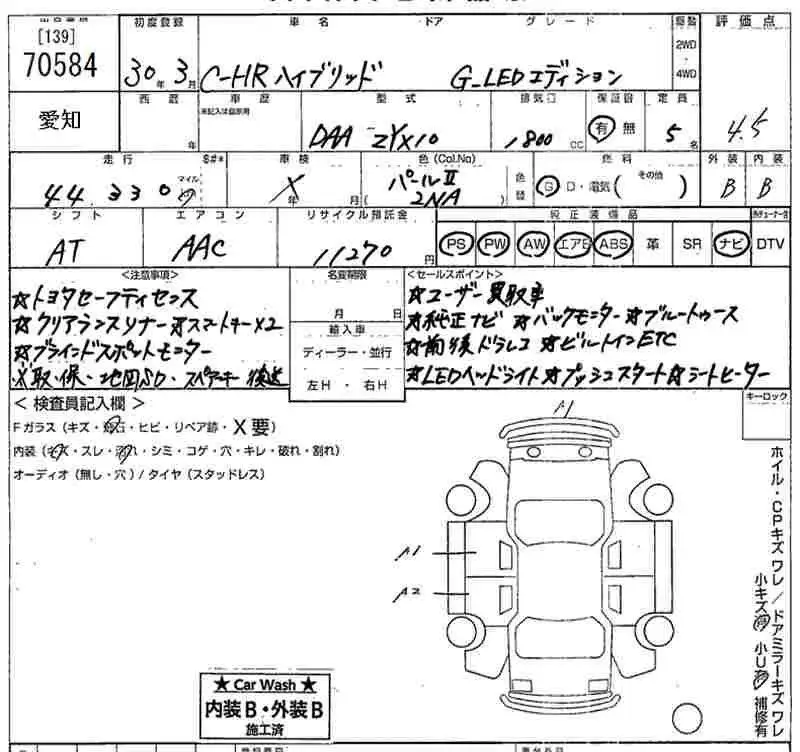 [139]
70584
初度登録
車名
ドア
グレード
駆動
評価点
30年3月
C-HR ハイブリッド
G_LEDエディション
2WD
・
4WD
4.5
愛知
西暦
年
車歴
型式
排気口
保証書
定員
DAA ZYX10
1800 CC
有 無
5名
走行
車検
色(Col.No)
燃料
外装
内装
44.330
マイル
X
年
月
パールⅡ
2NA
色替
G D・電気(その他)
B
B
シフト
エアコン
リサイクル預託金
純正装備品
AT
AAC
11270円
PS PW AW エアB ABS 革 SR ナビ DTV
<注意事項>
☆トヨタセーフティセンス
☆クリアランスソナー ☆スマートキー×2
☆ブラインドスポットモニター
※取・保・地図SD・スペアキー後送
名変期限
月 日
輸入車
ディーラー・並行
左H ・ 右H
<セールスポイント>
☆ユーザー買取車
☆純正ナビ ☆バックモニター ☆ブルートゥース
☆前後ドラレコ ☆ビルトインETC
☆LEDヘッドライト ☆プッシュスタート ☆シートヒーター
< 検査員記入欄 >
Fガラス(キズ・飛石・ヒビ・リペア跡・X要)
内装(キズ・スレ・汚れ・シミ・コゲ・穴・キレ・破れ・割れ)
オーディオ(無し・穴)/タイヤ(スタッドレス)
キーロック
A1
A1
A2
ホイル・CPキズ ワレ / ドアミラーキズ ワレ
小キズ有 小U有 補修有
★ Car Wash ★
内装B・外装B
施工済